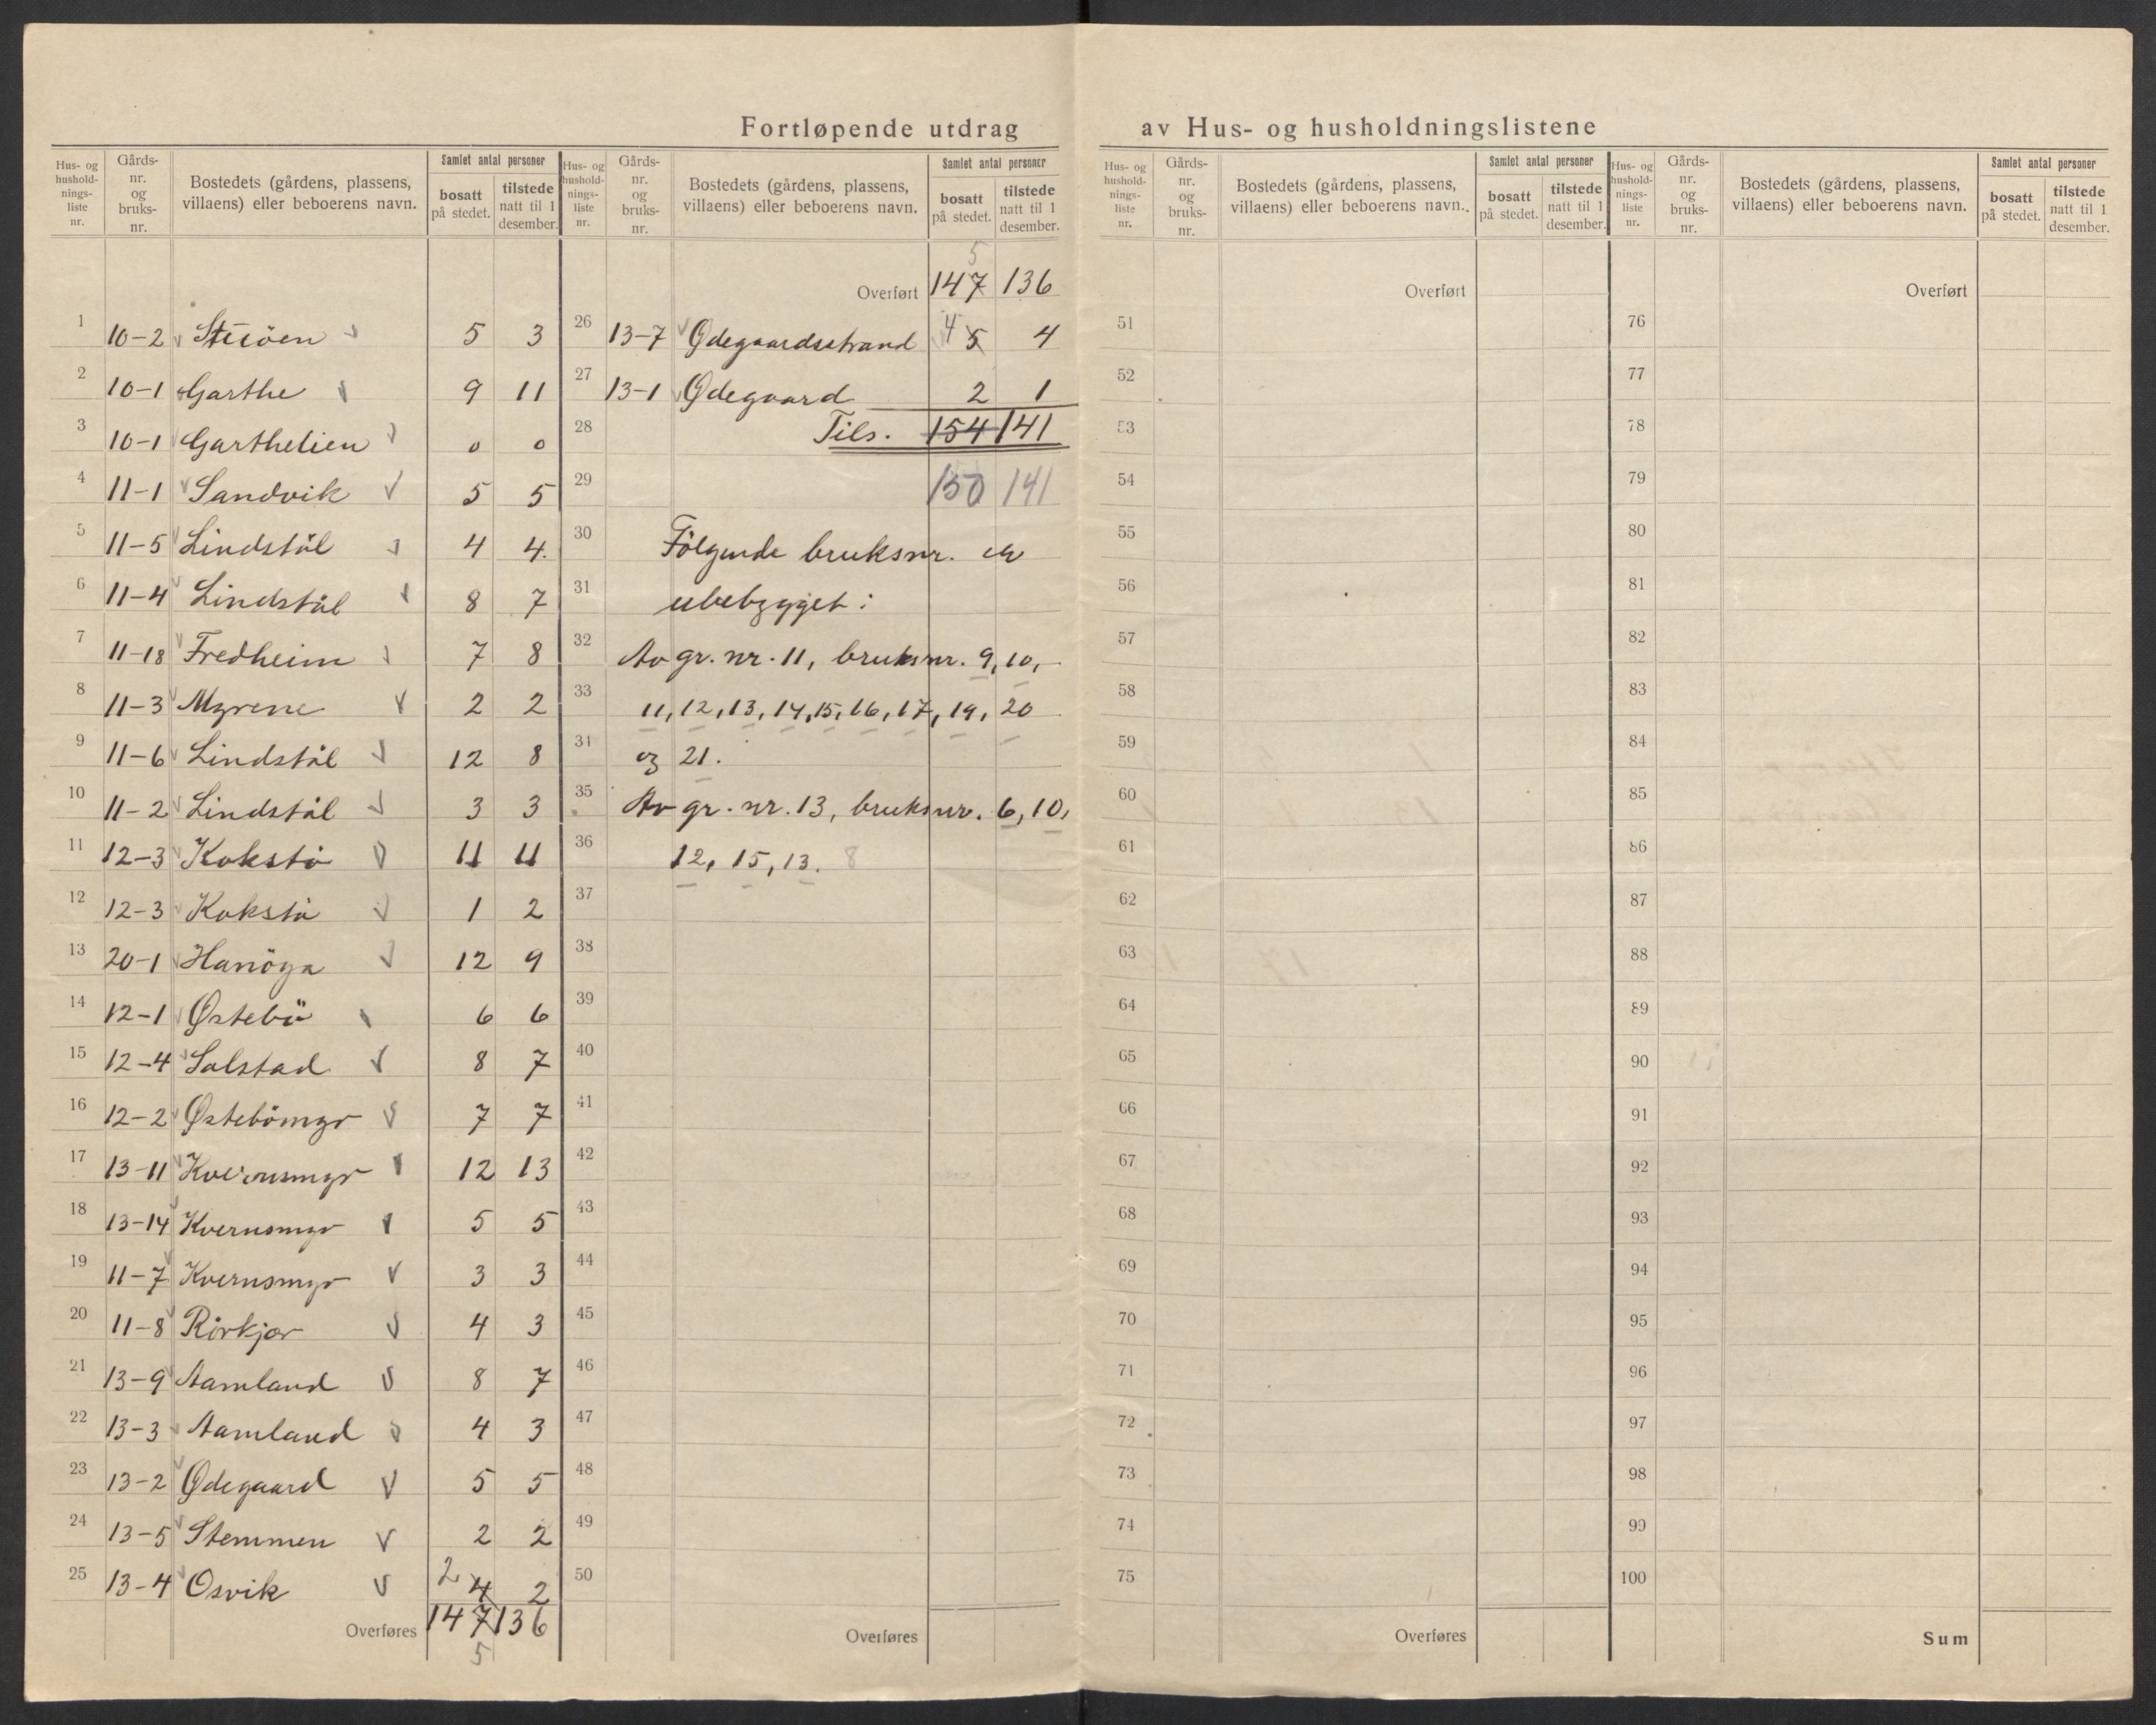 Fortløpende utdrag av Hus- og husholdningslistene
Hus- og hushold-nings-liste nr. Gårds-nr. og bruks-nr. Bostedets (gårdens, plassens, villaens) eller beboerens navn. Samlet antal personer bosatt på stedet. tilstede natt til 1 desember.
1 10-2 9 Strøen 5 3
2 10-1 Garthe 9 11
3 10-1 Garthelien 0 0
4 11-1 Sandvik 5 5
5 11-5 Lindstöl 4 4.
6 11-4 Lindstöl 8 7
7 11-18 Fredheim 7 8
8 11-3 Myrene 2 2
9 11-6 Lindstöl 12 8
10 11-2 Lindstöl 3 3
11 12-3 Kokstö 11 11
12 12-3 Kokstö 1 2
13 20-1 Hanöya 12 9
14 12-1 Østebö 6 6
15 12-4 Solstad 8 7
16 12-2 Østebömyr 7 7
17 13-11 Kvernsmyr 12 13
18 13-14 Kvernsmyr 5 5
19 11-7 Kvernsmyr 3 3
20 11-8 Rörkjær 4 3
21 13-9 Aamland 8 7
22 13-3 Aamland 4 3
23 13-2 Ødegaard 5 5
24 13-5 Stemmen 2 2
25 13-4 Osvik 2 4 2
Overføres 147 136
5
Hus- og hushold-nings-liste nr. Gårds-nr. og bruks-nr. Bostedets (gårdens, plassens, villaens) eller beboerens navn. Samlet antal personer bosatt på stedet. tilstede natt til 1 desember.
5
Overført 147 136
26 13-7 Ødegaardsstrand 4 5 4
27 13-1 Ødegaard 2 1
28 Tils. 154 141
29 150 141
30 Fölgende bruksnr. er
31 ubebygget:
32 Av gr. nr. 11, bruksnr. 9, 10,
33 11, 12, 13, 14, 15, 16, 17, 19, 20
34 og 21.
35 Av gr. nr. 13, bruksnr. 6, 10,
36 12, 15, 13. 8
37
38
39
40
41
42
43
44
45
46
47
48
49
50
Overføres
Hus- og hushold-nings-liste nr. Gårds-nr. og bruks-nr. Bostedets (gårdens, plassens, villaens) eller beboerens navn. Samlet antal personer bosatt på stedet. tilstede natt til 1 desember.
Overført
51
52
53
54
55
56
57
58
59
60
61
62
63
64
65
66
67
68
69
70
71
72
73
74
75
Overføres
Hus- og hushold-nings-liste nr. Gårds-nr. og bruks-nr. Bostedets (gårdens, plassens, villaens) eller beboerens navn. Samlet antal personer bosatt på stedet. tilstede natt til 1 desember.
Overført
76
77
78
79
80
81
82
83
84
85
86
87
88
89
90
91
92
93
94
95
96
97
98
99
100
Sum